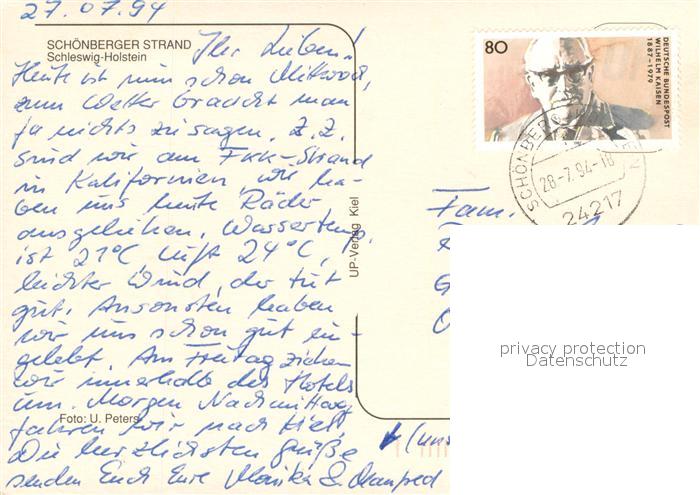 27.07.94
SCHÖNBERGER STRAND
Schleswig-Holstein
Ihr Lieben!
Heute ist nun schon Mittwoch,
zum Wetter braucht man
ja nichts zu sagen. Z.Z.
sind wir am FKK-Strand
in Kalifornien, wir ha-
ben uns heute Räder
ausgeliehen. Wassertemp.
ist 21°C, Luft 24°C,
leichter Wind, der tut
gut. Ansonsten haben
wir uns schon gut ein-
gelebt. Am Freitag ziehen
wir innerhalb des Hotels
um. Morgen Nachmittag
fahren wir nach Kiel.
Die herzlichsten Grüße
senden Euch Eure Monika & Manfred
Foto: U. Peters
UP-Verlag Kiel
80
DEUTSCHE BUNDESPOST
WILHELM KAISEN
1887-1979
SCHÖNBERG
28-7.94-18
24217
Fam.
privacy protection
Datenschutz